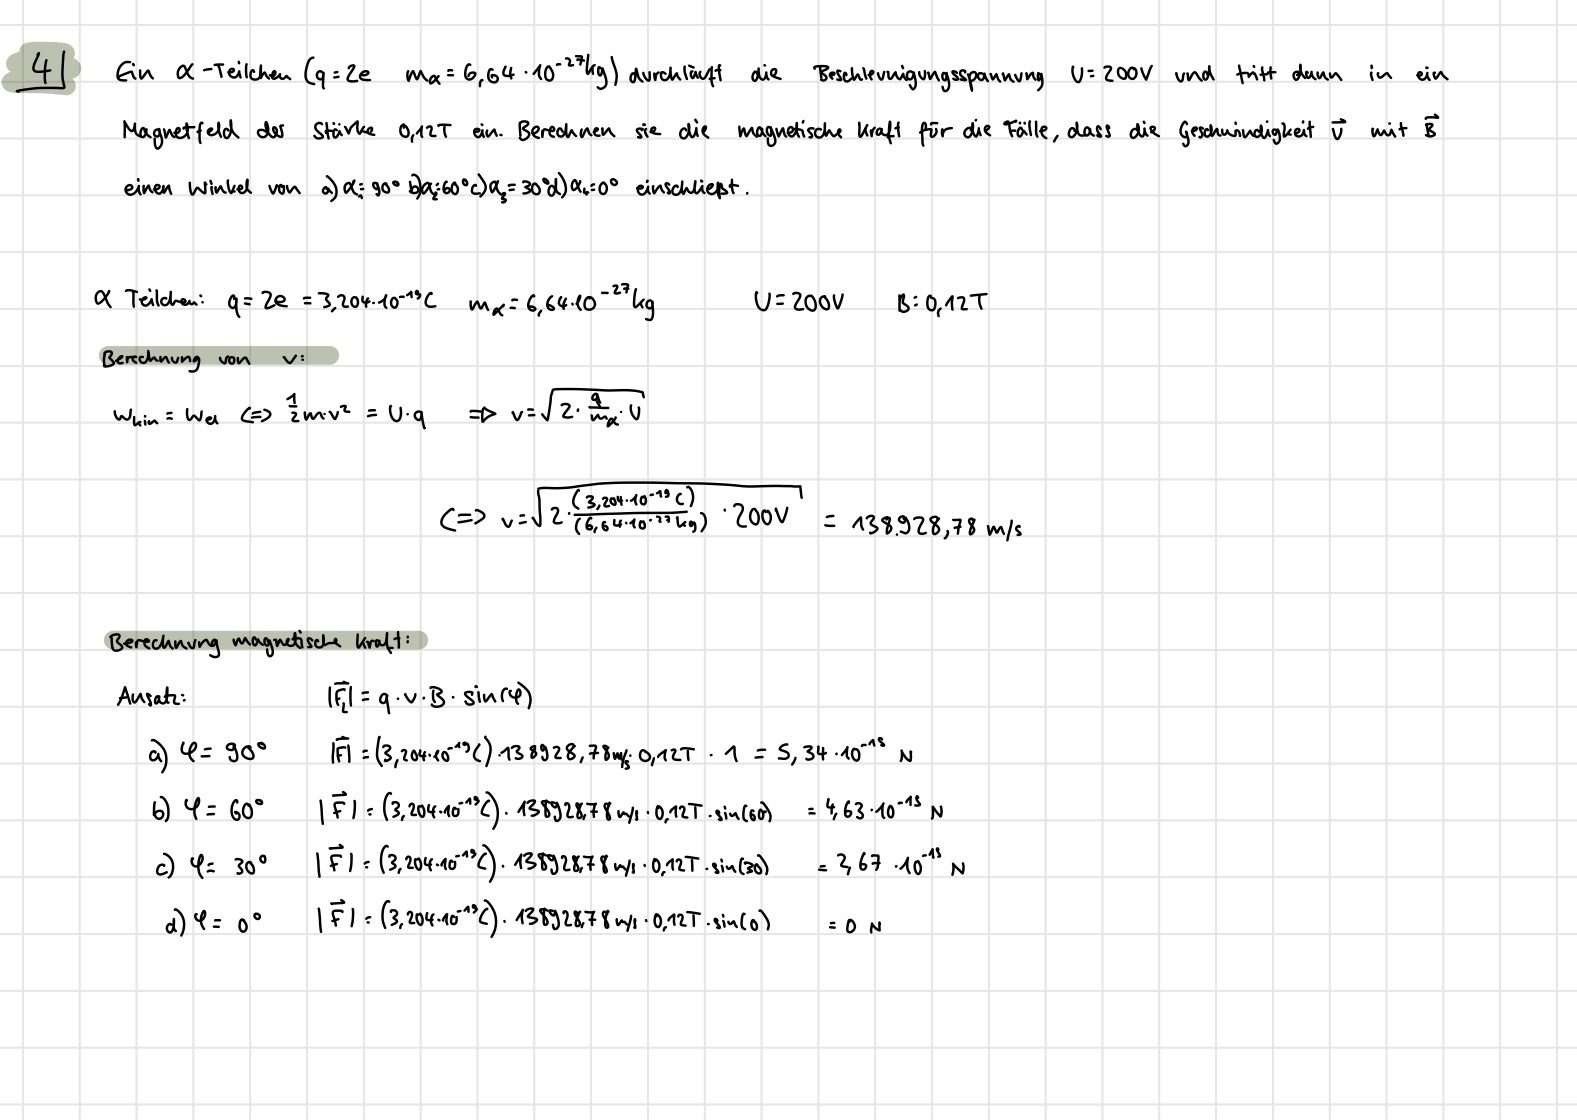 4|
Ein α-Teilchen (q = 2e mα = 6,64 · 10⁻²⁷kg) durchläuft die Beschleunigungsspannung U = 200V und tritt dann in ein
Magnetfeld der Stärke 0,12T ein. Berechnen sie die magnetische Kraft für die Fälle, dass die Geschwindigkeit v⃗ mit B⃗
einen Winkel von a) α₁= 90° b) α₂=60° c) α₃= 30° d) α₄=0° einschließt.
α Teilchen: q = 2e = 3,204·10⁻¹⁹C mα = 6,64·10⁻²⁷kg U = 200V B: 0,12T
Berechnung von v:
Wkin = Wel <=> 1/2 m·v² = U·q => v = √(2 · q/mα · U)
<=> v = √(2 · (3,204·10⁻¹⁹ C)/(6,64·10⁻²⁷kg) · 200V) = 138928,78 m/s
Berechnung magnetische Kraft:
Ansatz: |F⃗L| = q · v · B · sin(φ)
a) φ = 90° |F⃗| = (3,204·10⁻¹⁹C) · 138928,78 m/s · 0,12T · 1 = 5,34 · 10⁻¹⁵ N
b) φ = 60° |F⃗| = (3,204·10⁻¹⁹C) · 138928,78 m/s · 0,12T · sin(60) = 4,63 · 10⁻¹⁵ N
c) φ = 30° |F⃗| = (3,204·10⁻¹⁹C) · 138928,78 m/s · 0,12T · sin(30) = 2,67 · 10⁻¹⁵ N
d) φ = 0° |F⃗| = (3,204·10⁻¹⁹C) · 138928,78 m/s · 0,12T · sin(0) = 0 N